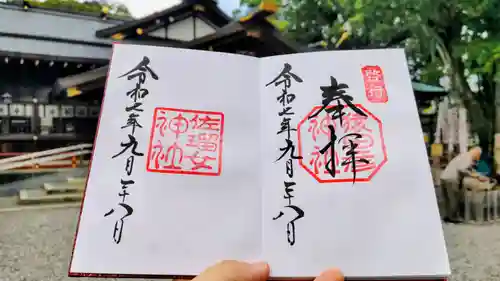 啓行
奉拝
猿田彦
神社
令和七年九月十八日
佐瑠女
神社
令和七年九月十八日